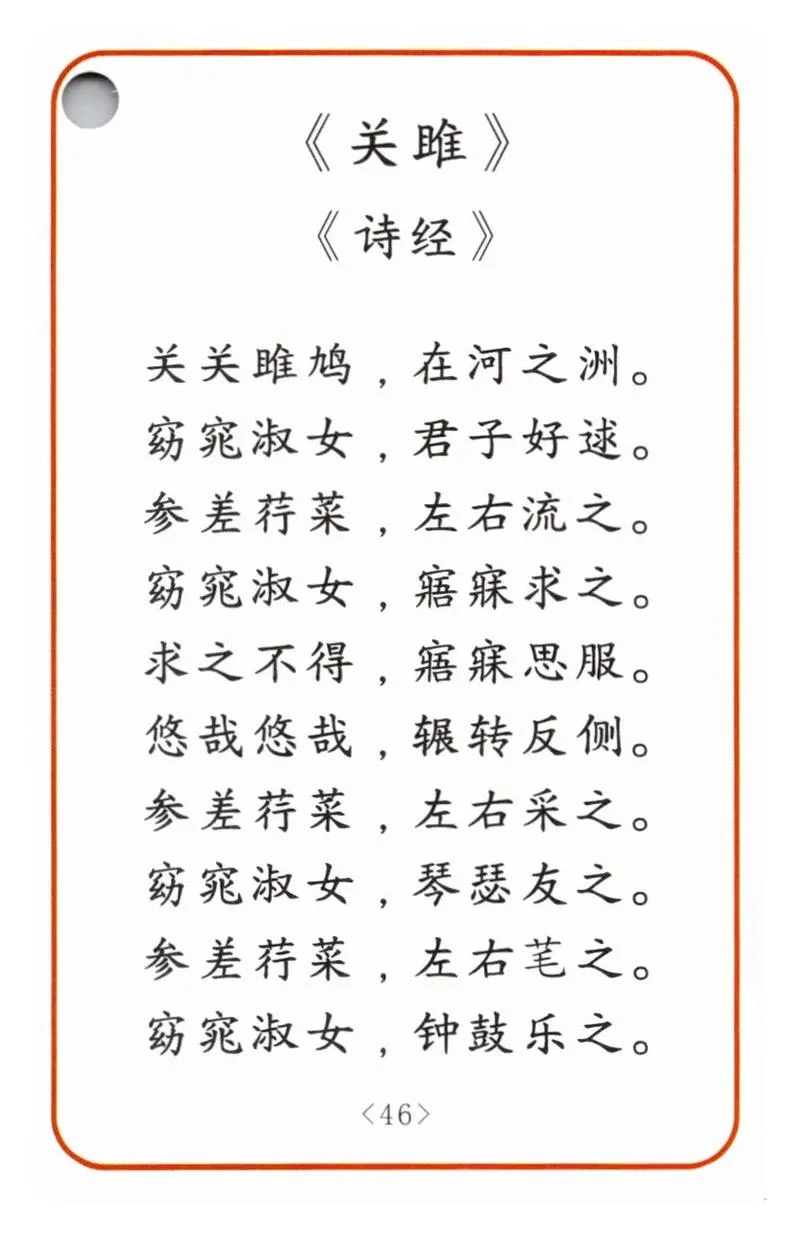 《关雎》
《诗经》
关关雎鸠，在河之洲。
窈窕淑女，君子好逑。
参差荇菜，左右流之。
窈窕淑女，寤寐求之。
求之不得，寤寐思服。
悠哉悠哉，辗转反侧。
参差荇菜，左右采之。
窈窕淑女，琴瑟友之。
参差荇菜，左右芼之。
窈窕淑女，钟鼓乐之。
<46>